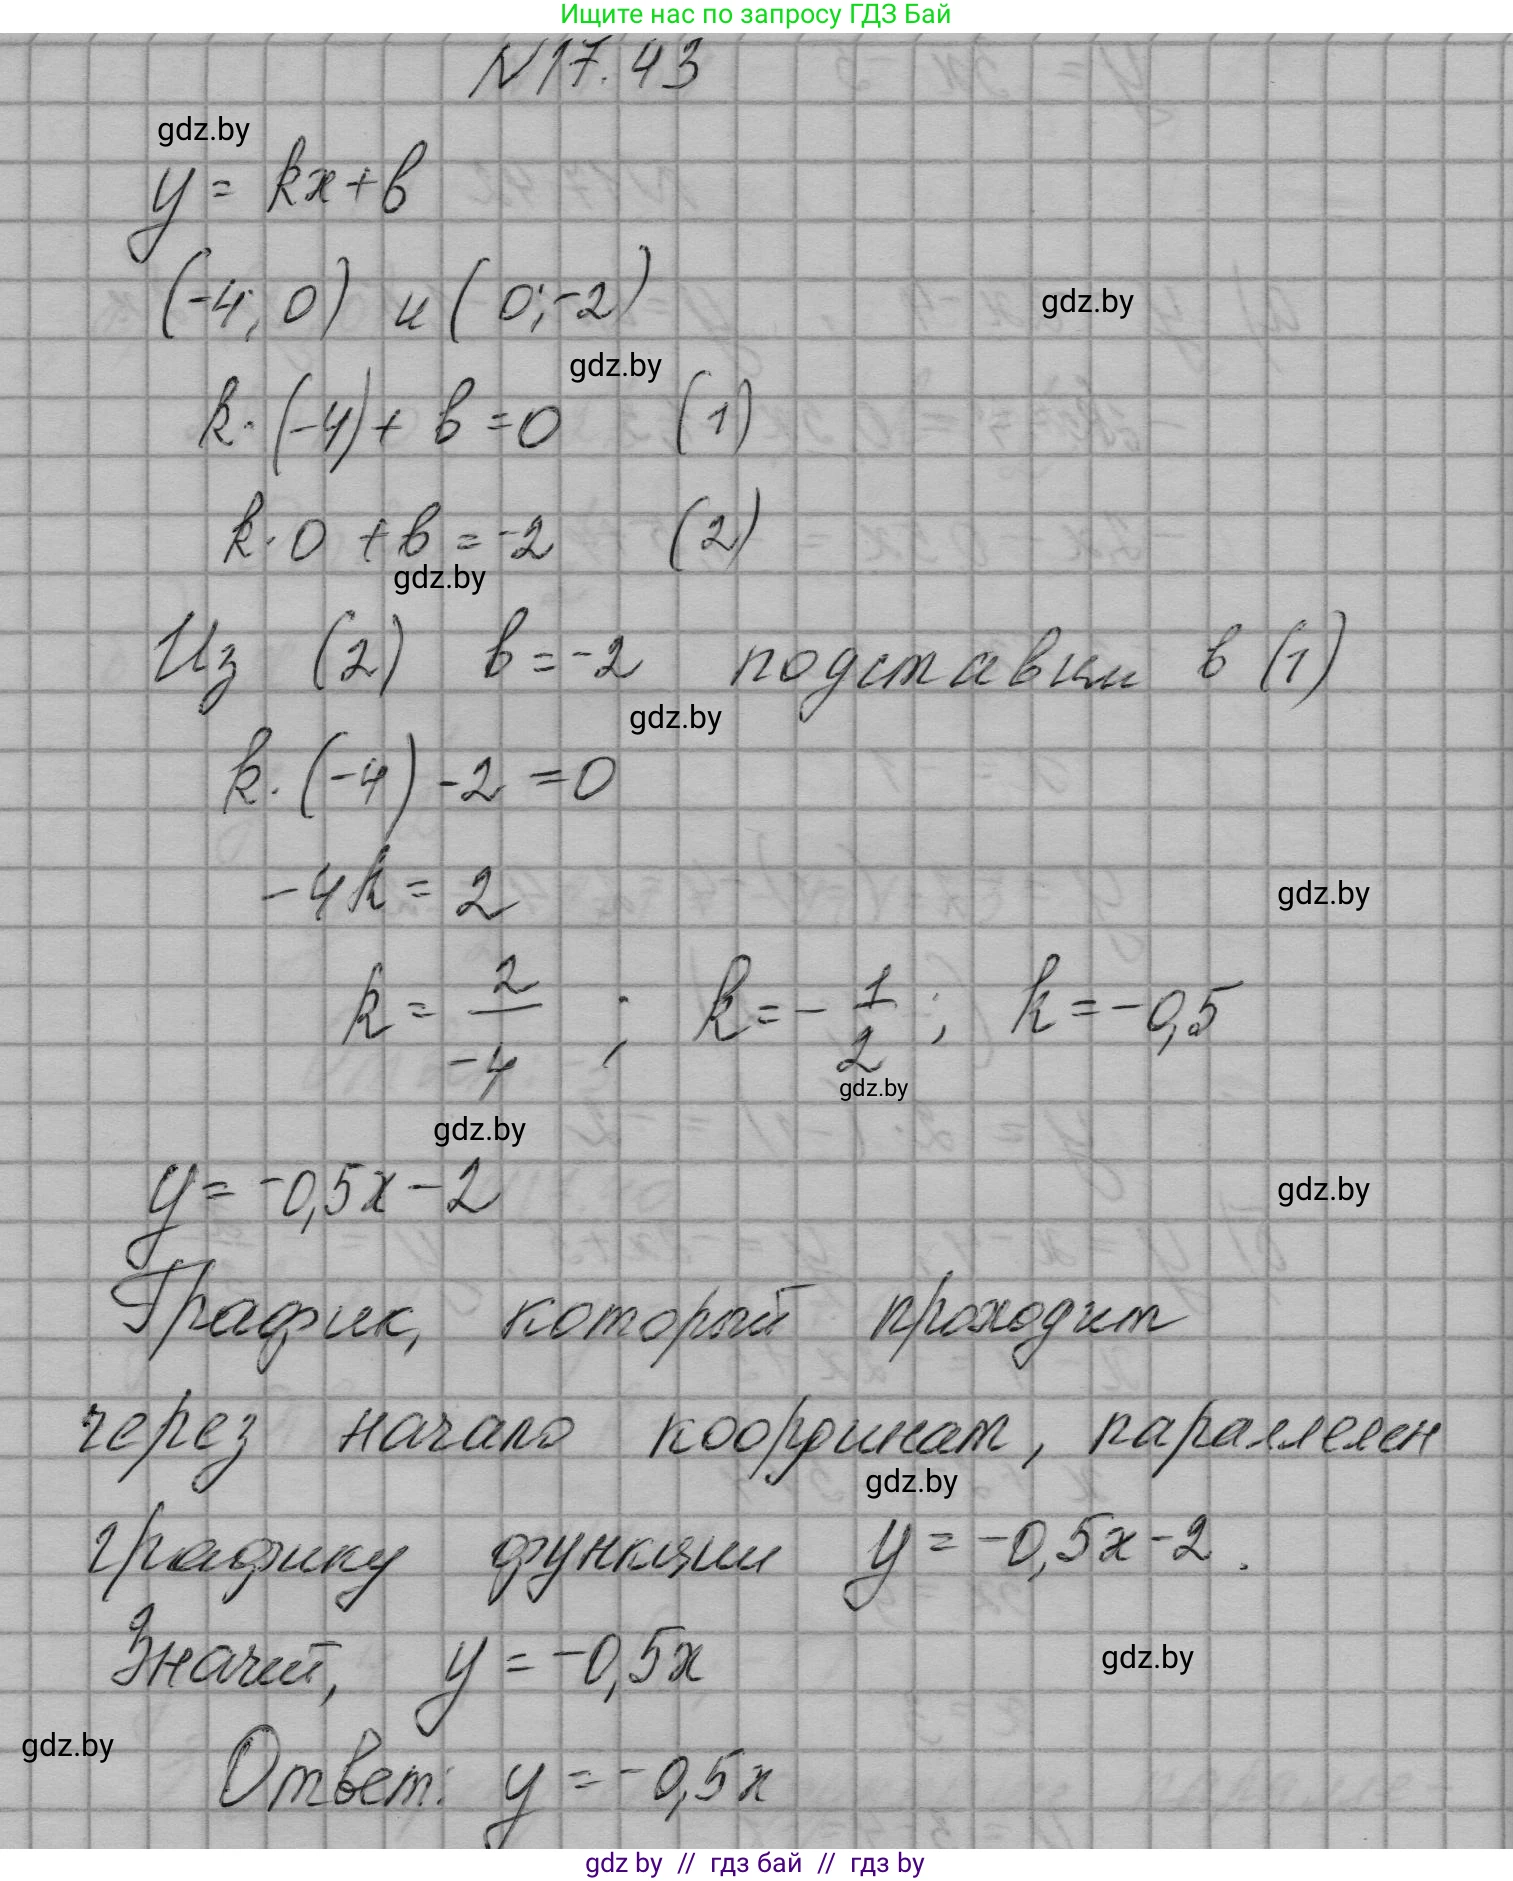 Ищите нас по запросу ГДЗ Бай
N 17.43
gdz.by
y = kx + b
(-4; 0) и (0; -2)
gdz.by
gdz.by
k·(-4) + b = 0 (1)
k·0 + b = -2 (2)
gdz.by
Из (2) b = -2 подставим в (1)
gdz.by
k·(-4) - 2 = 0
-4k = 2
gdz.by
k = 2/-4 ; k = - 1/2 ; k = -0,5
gdz.by
gdz.by
y = -0,5x - 2
gdz.by
График, который проходит
через начало координат, параллелен
gdz.by
графику функции y = -0,5x - 2.
Значит, y = -0,5x
gdz.by
gdz.by
Ответ: y = -0,5x
gdz by // гдз бай // гдз by